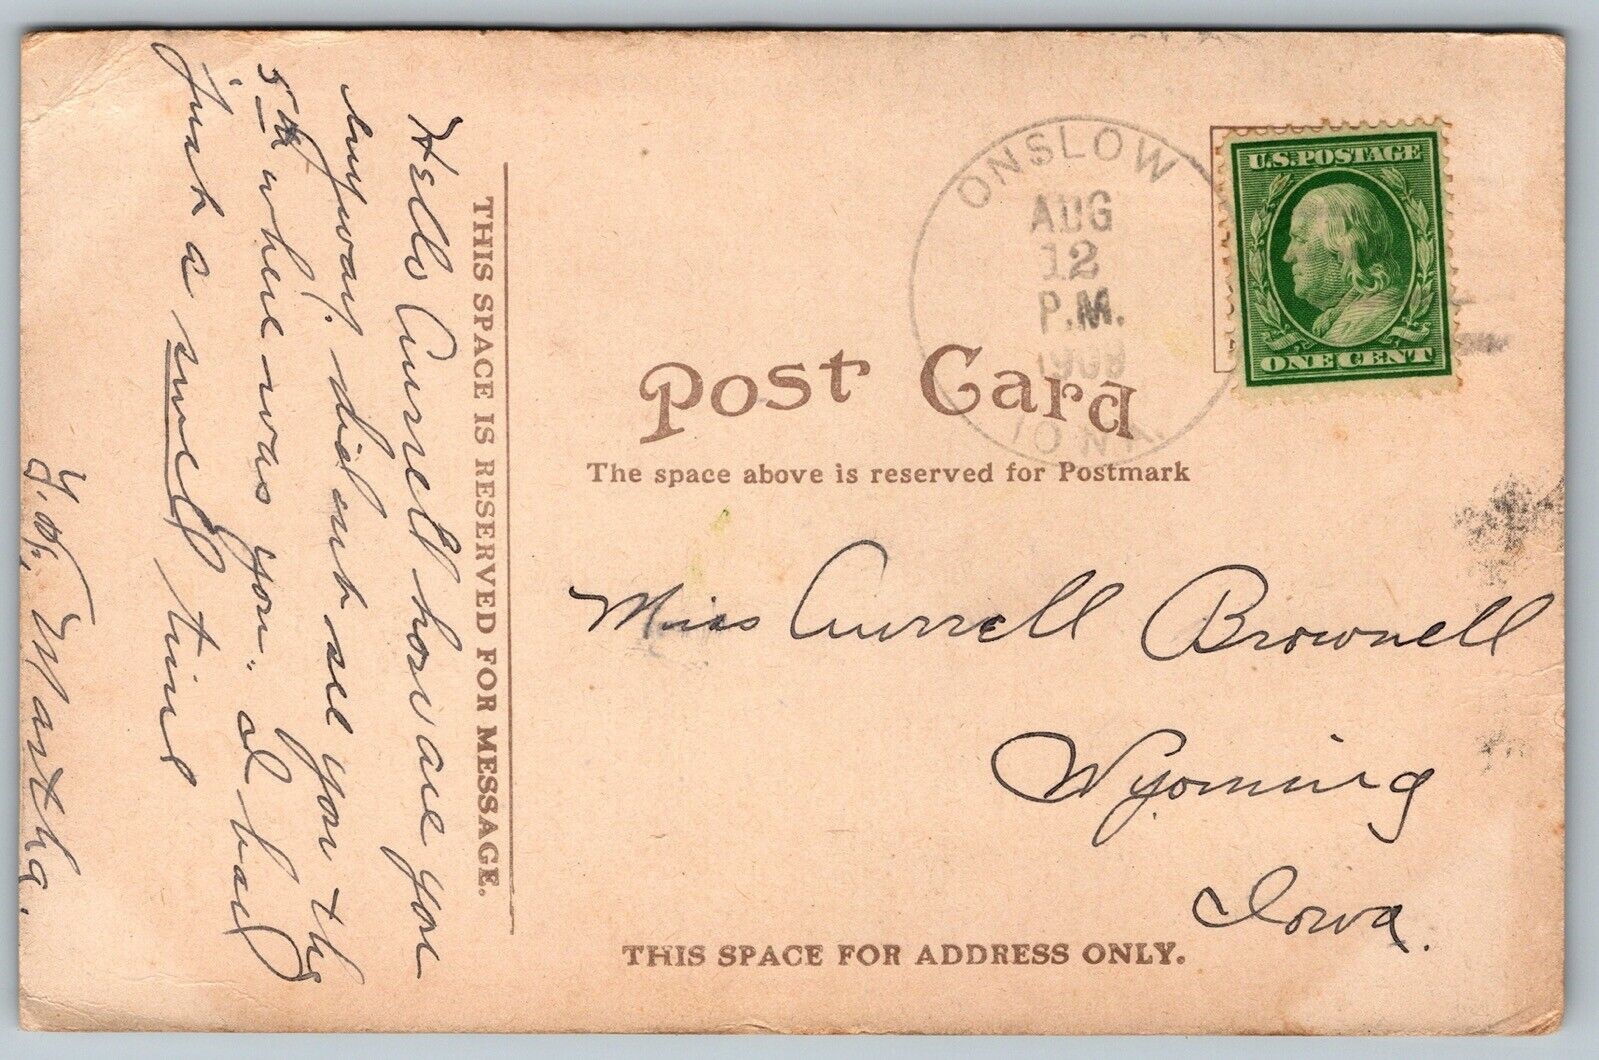 Hello Currell how are you
anyway. did not see you the
5th where was you. I had
just a swell time
Y. F., Martha.
THIS SPACE IS RESERVED FOR MESSAGE.
ONSLOW
AUG
12
P.M.
IOWA
U.S. POSTAGE
ONE CENT
Post Card
The space above is reserved for Postmark
Miss Currell Brownell
Wyoming
Iowa.
THIS SPACE FOR ADDRESS ONLY.